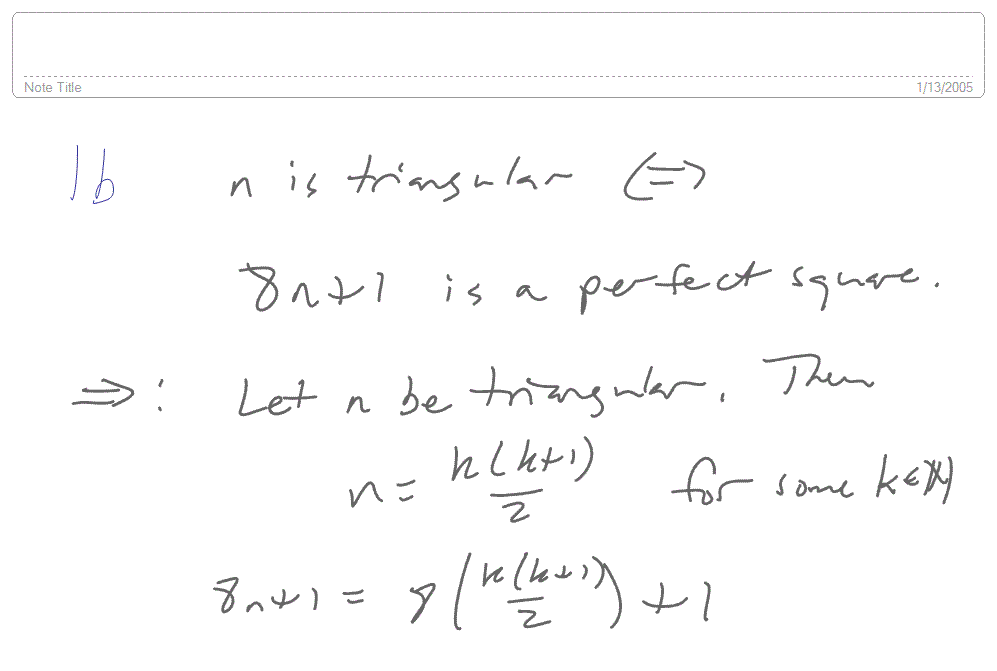 Note Title 1/13/2005
1b n is triangular (=>
8n+1 is a perfect square.
=>: Let n be triangular. Then
n = k(k+1)/2 for some k∈ℕ
8n+1 = 8(k(k+1)/2) + 1